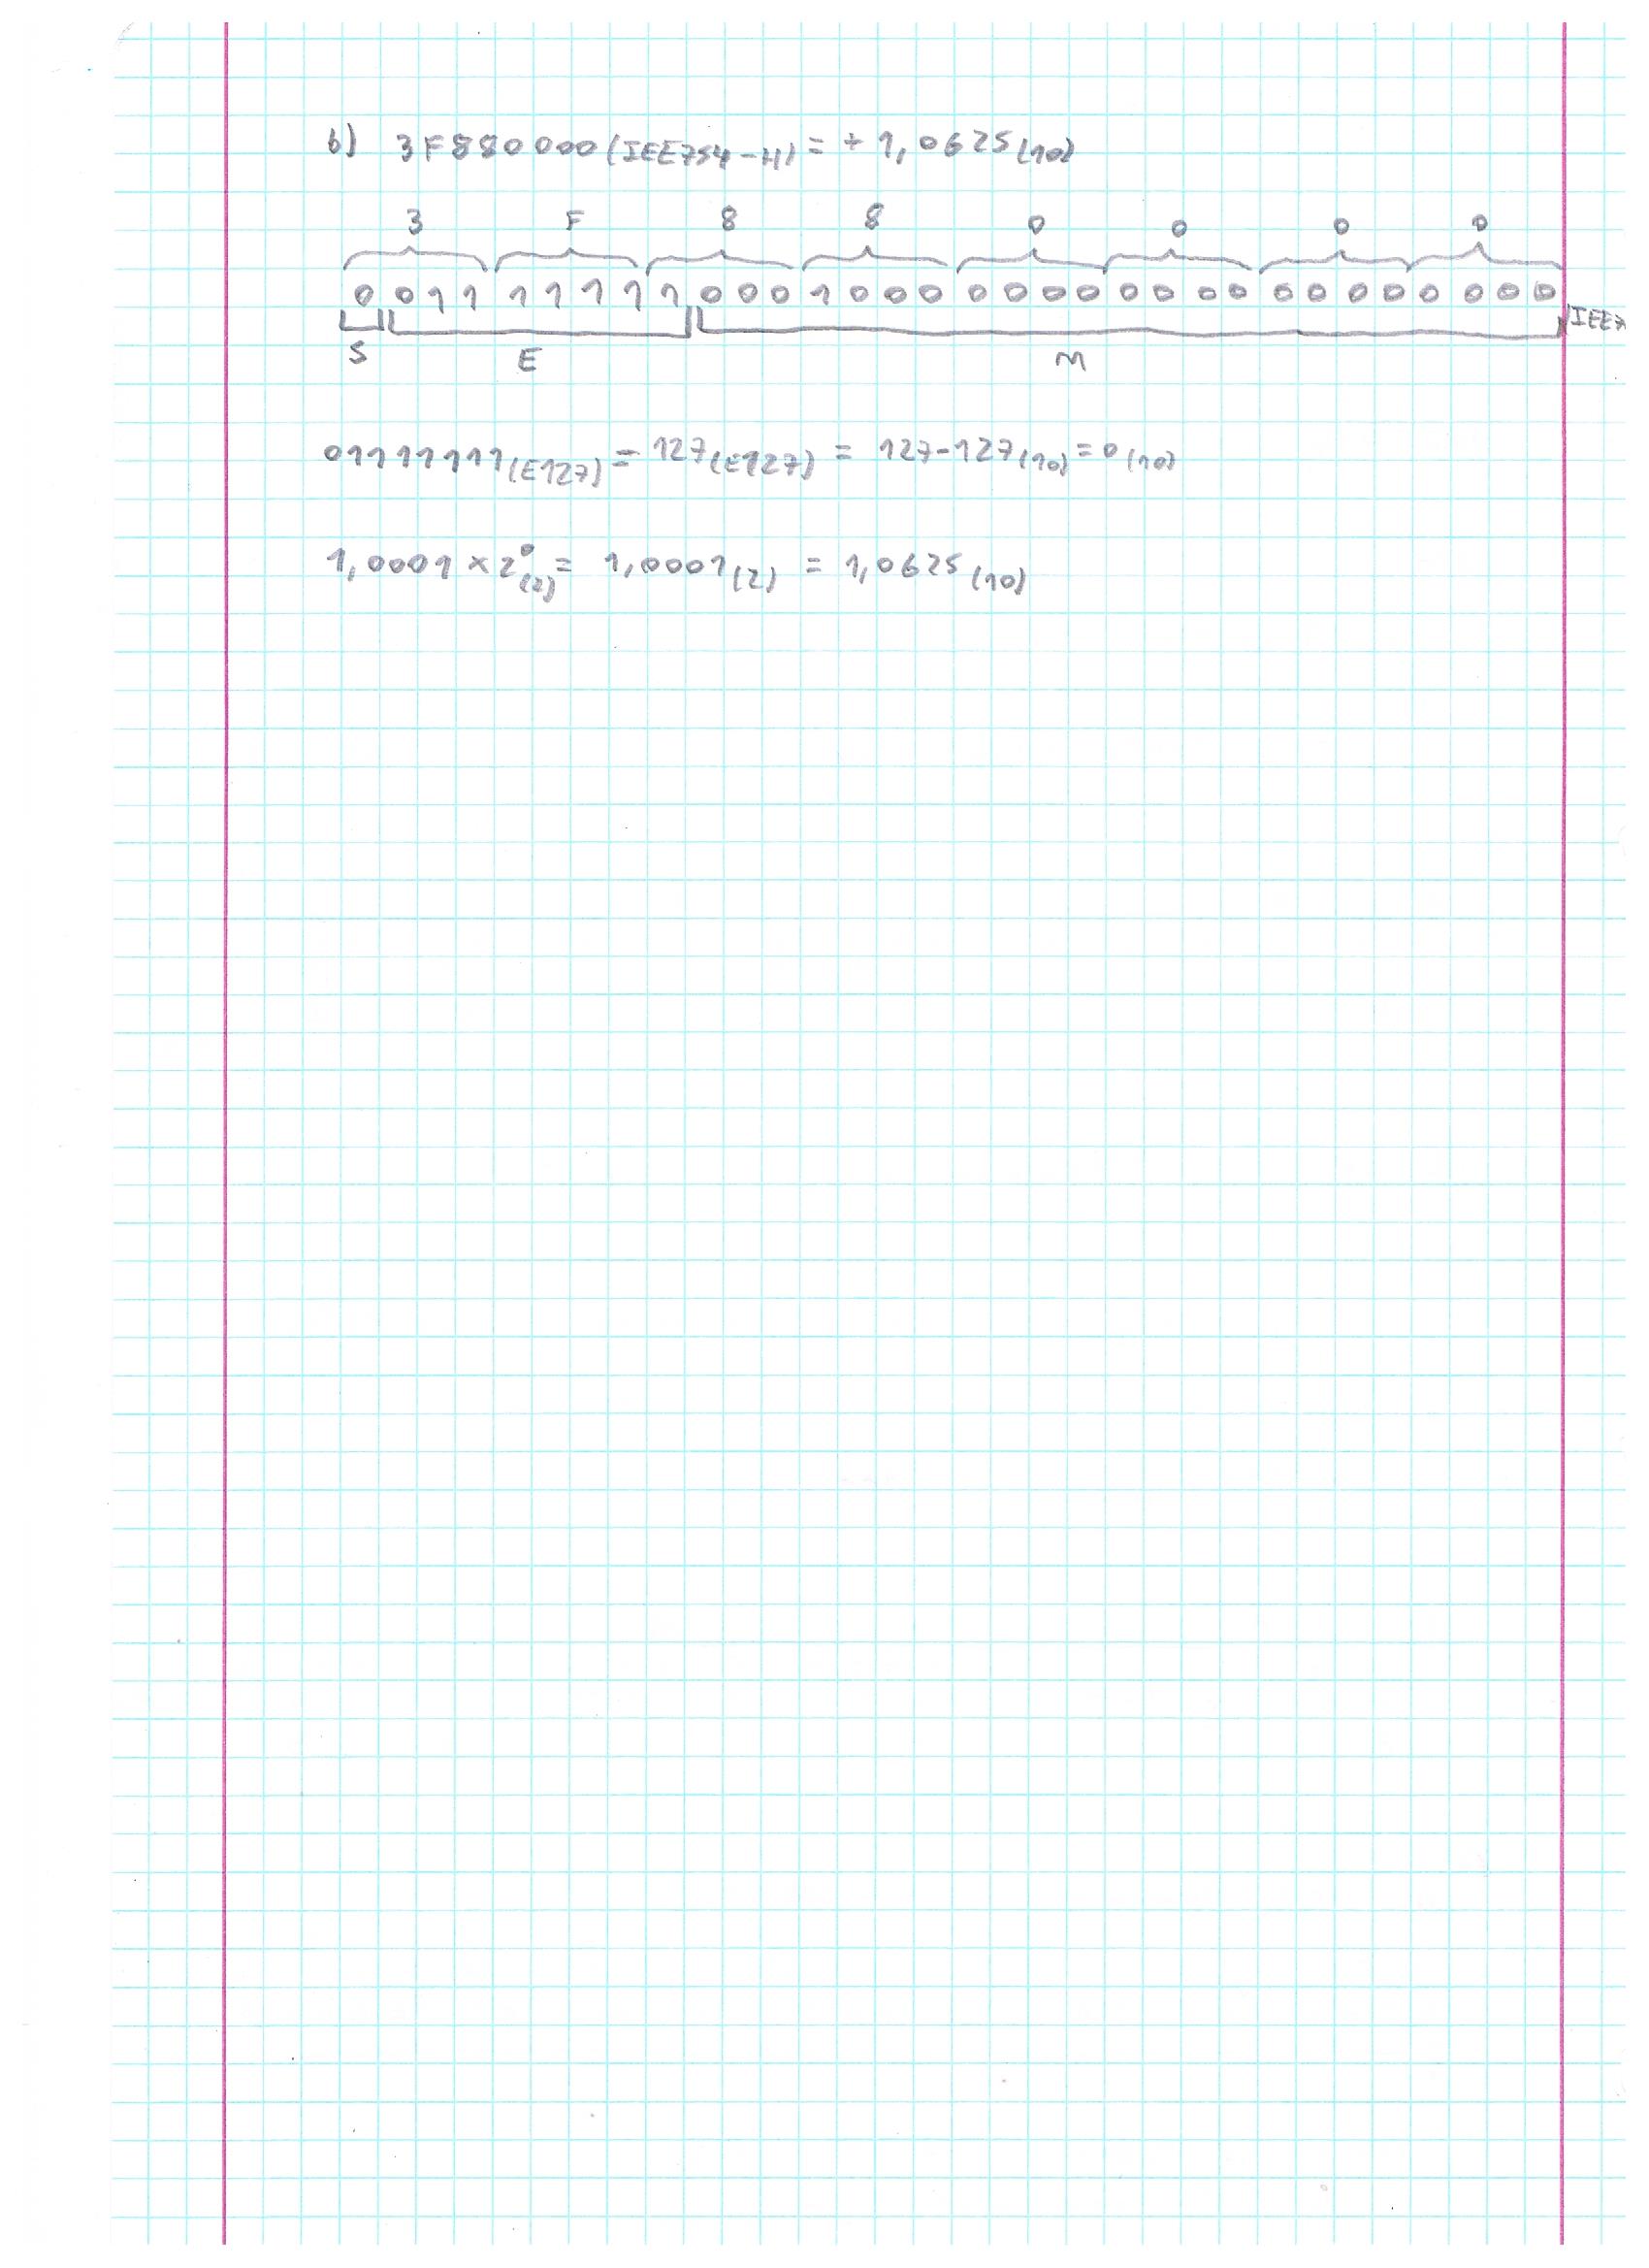 b) 3F880000(IEE754-H) = + 1,0625(10)
3 F 8 8 0 0 0 0
0 011 1111 1000 1000 0000 0000 0000 0000
S E M
01111111(E127) = 127(E127) = 127-127(10) = 0(10)
1,0001 x 2⁰(2) = 1,0001(2) = 1,0625(10)